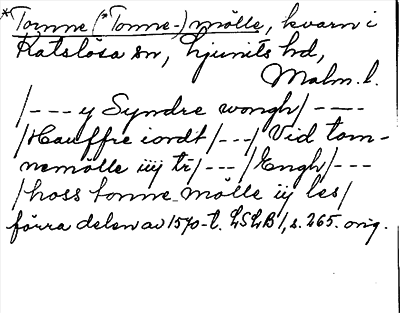 *Tomme (*Tonne-) mölle, kvarn i
Katslösa sn, Ljunits hd,
Malm. l.
/--- y Syndre wongh/ ---
/Hauffre iordt/---/ Vid tom-
nemölle iiij tr/---/Engh/---
/hoss tonne mölle iij les/
förra delen av 1570-t. LSLB1, s. 265. orig.